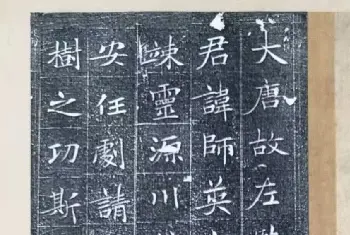 大唐故左
君諱師英
竦靈源川
安任劇請
樹之功斯